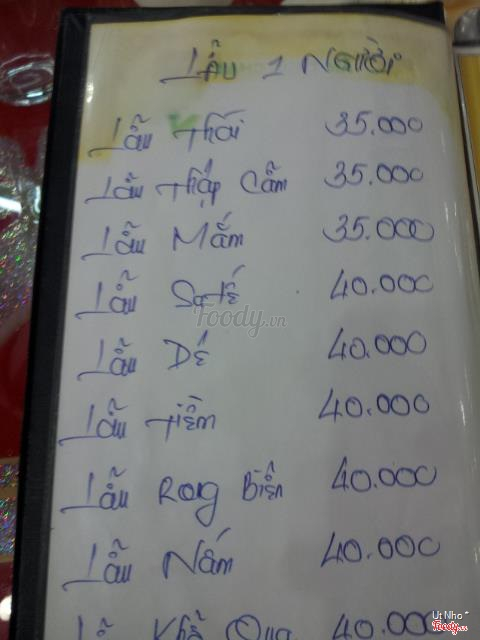 LẨU 1 NGƯỜI
Lẩu Thái 35.000
Lẩu Thập Cẩm 35.000
Lẩu Mắm 35.000
Lẩu Sa Tế 40.000
Foody.vn
Lẩu Dê 40.000
Lẩu Tiềm 40.000
Lẩu Rong Biển 40.000
Lẩu Nấm 40.000
Lẩu Khổ Qua 40.000
Ut Nho
Foody.vn